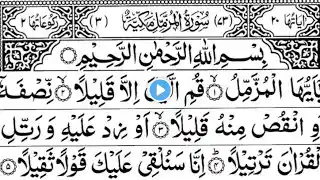 اٰیَاتُهَا ۲۰ (۷۳) سُوْرَةُ الْمُزَّمِّلِ مَكِّیَّةٌ (۳) رُكُوْعَاتُهَا ۲
بِسْمِ اللّٰهِ الرَّحْمٰنِ الرَّحِیْمِ
یٰۤاَیُّهَا الْمُزَّمِّلُ ۙ قُمِ الَّیْلَ اِلَّا قَلِیْلًا ۙ نِّصْفَهٗۤ
اَوِ انْقُصْ مِنْهُ قَلِیْلًا ۙ۳ اَوْ زِدْ عَلَیْهِ وَ رَتِّلِ
الْقُرْاٰنَ تَرْتِیْلًا ؕ۴ اِنَّا سَنُلْقِیْ عَلَیْكَ قَوْلًا ثَقِیْلًا ۵